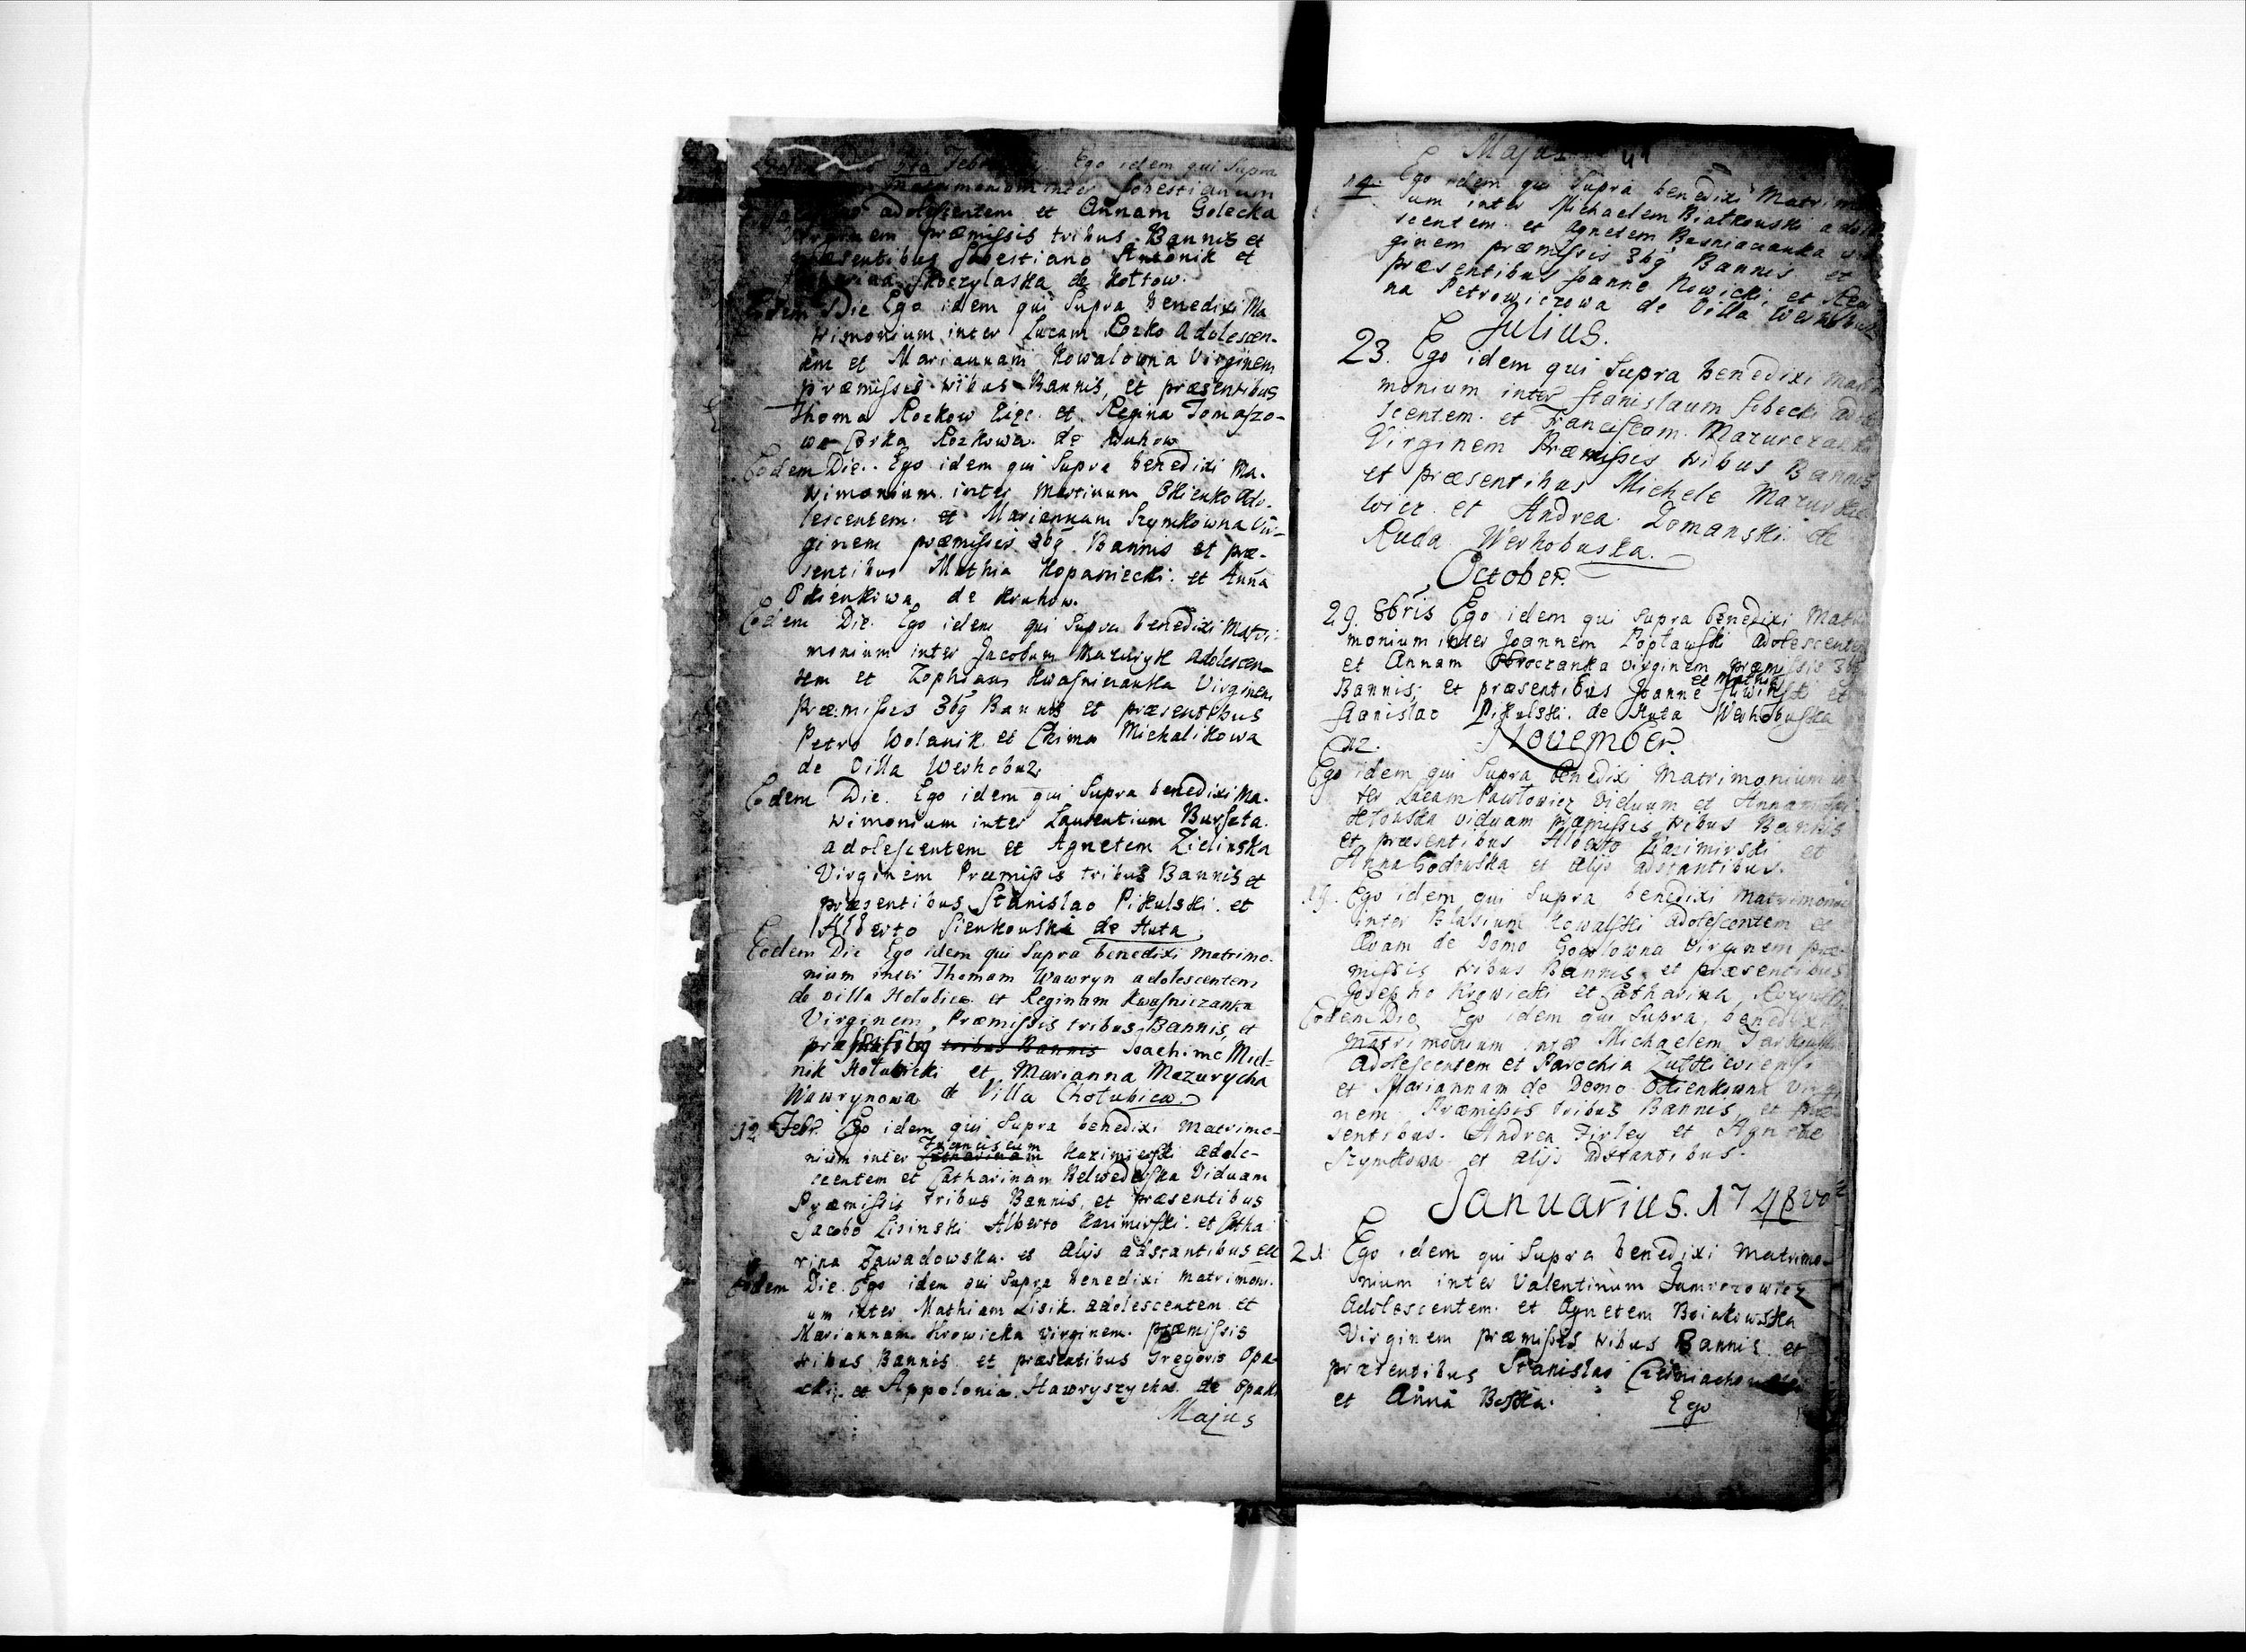 Ego idem qui Supra
Matrimonium inter Sobestianum
adolescentem et Annam Golecka
Virginem præmissis tribus Bannis et
præsentibus Sobestiano Antonik et
Skoczylaska de Koltow.
Eodem Die Ego idem qui Supra benedixi Ma
trimonium inter Lucam Rozko Adolescen-
tem et Mariannam Kowalowna Virginem
præmissis tribus Bannis, et præsentibus
Thoma Rozkow et Regina Tomaszo-
wa Corka Rozkowa de Kruhow
Eodem Die. Ego idem qui Supra benedixi Ma-
trimonium inter Martinum Okienko Ado-
lescentem et Mariannam Szymkowna Vir-
ginem præmissis 3bg Bannis et præ-
sentibus Mathia Kopaniecki et Anna
Okienkowa de Kruhow.
Eodem Die. Ego idem qui Supra benedixi Matri-
monium inter Jacobum Mazuryk Adolescen-
tem et Zophiam Kwasniczanka Virginem
præmissis 3bg Bannis et præsentibus
Petro Wolanik et Chima Michalikowa
de Villa Werhobuz
Eodem Die. Ego idem qui Supra benedixi Ma-
trimonium inter Laurentium Bursata
adolescentem et Agnetem Zielinska
Virginem Præmissis tribus Bannis et
præsentibus Stanislao Pikulski et
Alberto Sienkouski de Huta
Eodem Die Ego idem qui Supra benedixi matrimo-
nium inter Thomam Wawryn adolescentem
de villa Holubica et Reginam Kwasniczanka
Virginem, Præmissis tribus Bannis, et
præsentibg tribus Bannis Joachimo Miel-
nik Holubicki et Marianna Mazurycha
Wawrynowa de Villa Chotubica.
12 Febr. Ego idem qui Supra benedixi Matrimo-
Franciscum
nium inter Catharinam Kazimierski adole-
scentem et Catharinam Belwederska Viduam
Præmissis tribus Bannis, et præsentibus
Jacobo Lisinski Alberto Kazimirski et Catha
rina Zawadowska et alijs adstantibus
Eodem Die. Ego idem qui Supra benedixi matrimoni-
um inter Mathiam Lisik adolescentem et
Mariannam Krowicka virginem præmissis
tribus Bannis et præsentibus Gregorio Opa-
cki et Appolonia Hawryszycha de Opaki
Majus
Majus 41
14. Ego idem qui Supra benedixi Matrimoni
um inter Michaelem Bialkouski adole
scentem et Agnetem Besniacianka vir
ginem præmissis 3bg Bannis et
præsentibus Joanne Nowicki et Regi
na Petrowiczowa de Villa Werhobuz
Julius.
23. Ego idem qui Supra benedixi Matri
monium inter Stanislaum Sobecki adole
scentem et Franciscam Mazurczanka
Virginem Præmissis tribus Bannis
et præsentibus Michele Mazurkie
wicz et Andrea Zomanski de
Ruda Werhobuska.
October.
29. 8bris Ego idem qui Supra benedixi Matri
monium inter Joannem Poplauski adolescentem
et Annam Obroczanka virginem præmissis 3bg
et Mathia
Bannis, et præsentibus Joanne Sliwinski et
Stanislao Pikulski de Huta Werhobuska
12. November.
Ego idem qui Supra benedixi Matrimonium in
ter Lucam Pawlowicz Viduum et Annam
viduam præmissis tribus Bannis
et præsentibus Alberto Kazimirski et
Anna Godowska et alijs adstantibus.
19. Ego idem qui Supra benedixi Matrimonium
inter Blasium Kowalski adolescentem et
Evam de Domo Virginem præ-
missis tribus Bannis et præsentibus
Josepho Krowicki et Catharina
Eodem Die Ego idem qui Supra benedixi
matrimonium inter Michaelem Jarkouski
adolescentem et Parochia
et Mariannam de Domo Okienkowna Virgi
nem Præmissis tribus Bannis, et præ-
sentibus Andrea Firley et Agnete
Szymkowa et alijs adstantibus.
Januarius. 1748vo
21. Ego idem qui Supra benedixi Matrimo-
nium inter Valentinum
Adolescentem et Agnetem Boinkowska
Virginem præmissis tribus Bannis et
præsentibus Stanislao
et Anna
Ego